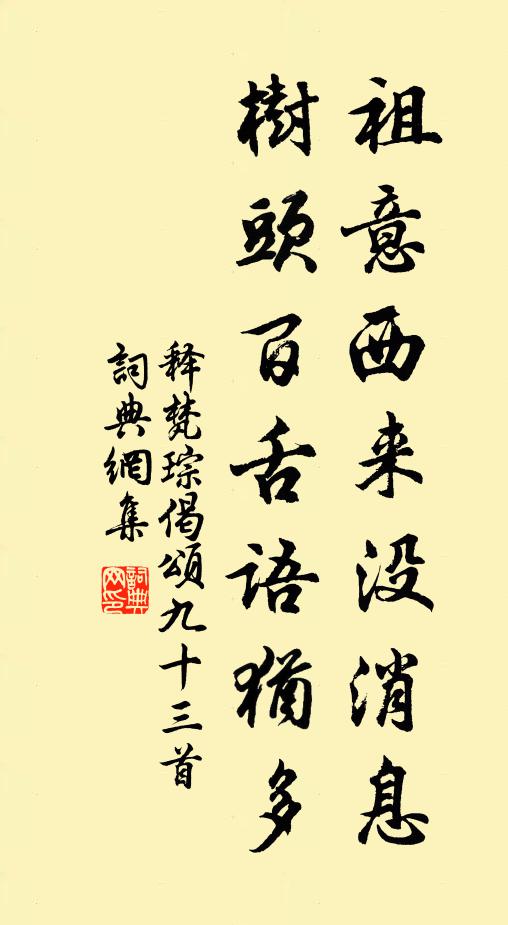 祖意西来没消息
樹頭百舌語猶多
释梵琮偈頌九十三首
詞典網集
詞典网印